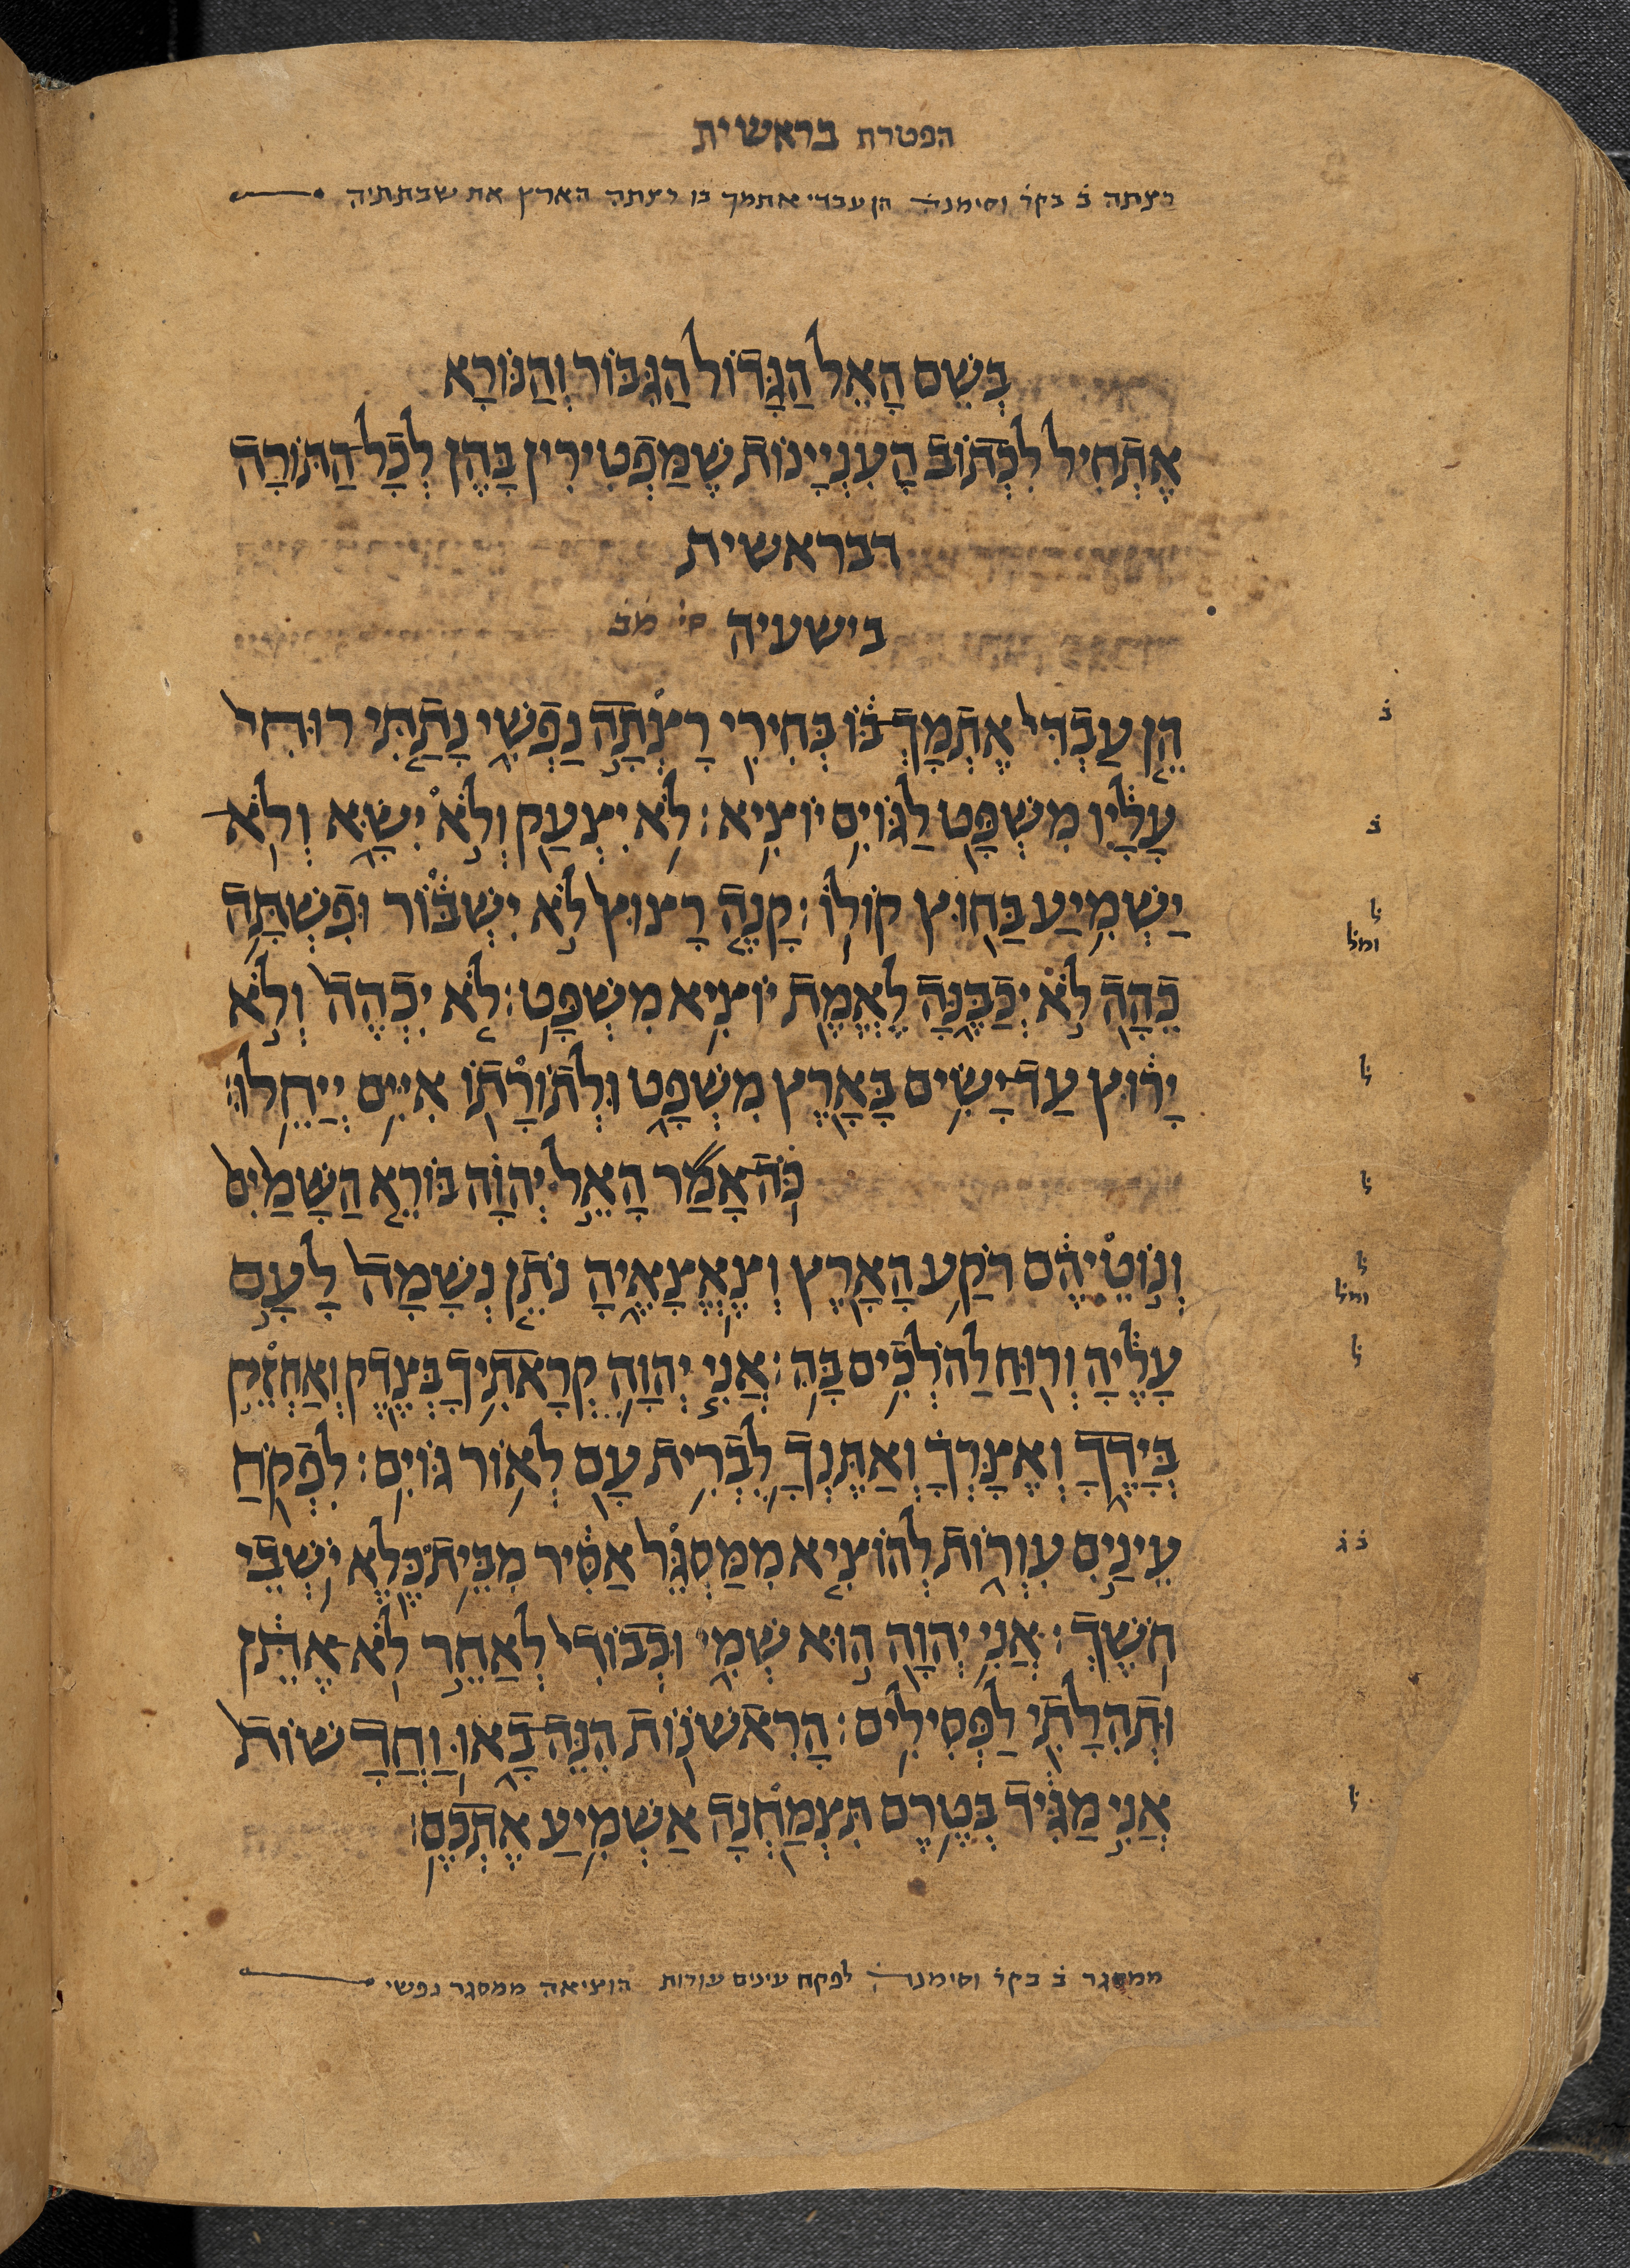 הפטרת בראשית
רצתה ב̇ בקר̇ וסימנה̇ הן עבדי אתמך בו רצתה הארץ את שבתתיה
בְּשֵׁם הָאֵל הַגָּדוֹל הַגִּבּוֹר וְהַנּוֹרָא
אֶתְחִיל לִכְתּוֹב הָעִנְיָינוֹת שֶׁמַפְטִירִין בָּהֶן לְכָל הַתּוֹרָה
דבראשית
בישעיה סי̇ מב̇
הֵ֤ן עַבְדִּי֙ אֶתְמָךְ־בּ֔וֹ בְּחִירִ֖י רָצְתָ֣ה נַפְשִׁ֑י נָתַ֤תִּי רוּחִי֙
עָלָ֔יו מִשְׁפָּ֖ט לַגּוֹיִ֥ם יוֹצִֽיא׃ לֹ֥א יִצְעַ֖ק וְלֹ֣א יִשָּׂ֑א וְלֹֽא־
יַשְׁמִ֥יעַ בַּח֖וּץ קוֹלֽוֹ׃ קָנֶ֤ה רָצוּץ֙ לֹ֣א יִשְׁבּ֔וֹר וּפִשְׁתָּ֥ה
כֵהָ֖ה לֹ֣א יְכַבֶּ֑נָּה לֶאֱמֶ֖ת יוֹצִ֥יא מִשְׁפָּֽט׃ לֹ֤א יִכְהֶה֙ וְלֹ֣א
יָר֔וּץ עַד־יָשִׂ֥ים בָּאָ֖רֶץ מִשְׁפָּ֑ט וּלְתוֹרָת֖וֹ אִיִּ֥ים יְיַחֵֽלוּ׃
כֹּֽה־אָמַ֞ר הָאֵ֣ל יְהוָ֗ה בּוֹרֵ֤א הַשָּׁמַ֙יִם֙
וְנ֣וֹטֵיהֶ֔ם רֹקַ֥ע הָאָ֖רֶץ וְצֶאֱצָאֶ֑יהָ נֹתֵ֤ן נְשָׁמָה֙ לָעָ֣ם
עָלֶ֔יהָ וְר֖וּחַ לַהֹלְכִ֥ים בָּֽהּ׃ אֲנִ֧י יְהוָ֛ה קְרָאתִ֥יךָ בְצֶ֖דֶק וְאַחְזֵ֣ק
בְּיָדֶ֑ךָ וְאֶצָּרְךָ֗ וְאֶתֶּנְךָ֛ לִבְרִ֥ית עָ֖ם לְא֥וֹר גּוֹיִֽם׃ לִפְקֹ֖חַ
עֵינַ֣יִם עִוְר֑וֹת לְהוֹצִ֤יא מִמַּסְגֵּר֙ אַסִּ֔יר מִבֵּ֥ית כֶּ֖לֶא יֹ֥שְׁבֵי
חֹֽשֶׁךְ׃ אֲנִ֥י יְהוָ֖ה ה֣וּא שְׁמִ֑י וּכְבוֹדִי֙ לְאַחֵ֣ר לֹֽא־אֶתֵּ֔ן
וּתְהִלָּתִ֖י לַפְּסִילִֽים׃ הָרִאשֹׁנ֖וֹת הִנֵּה־בָ֑אוּ וַֽחֲדָשׁוֹת֙
אֲנִ֣י מַגִּ֔יד בְּטֶ֥רֶם תִּצְמַ֖חְנָה אַשְׁמִ֥יעַ אֶתְכֶֽם׃
ב̇
ב̇
ל̇
ומל̇
ל̇
ל̇
ל̇
ומל̇
ל̇
ב̇ ג̇
ל̇
ממסגר ב̇ בקר̇ וסימנה̇ לפקח עינים עורות הוציאה ממסגר נפשי